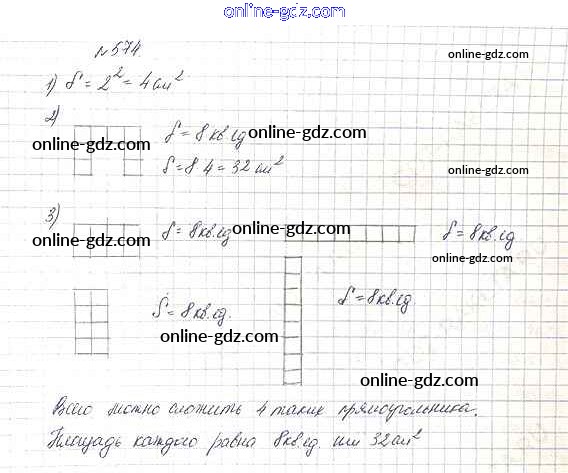 online-gdz.com
№574
online-gdz.com
1) S = 2² = 4 см²
2)
online-gdz.com S = 8 кв.ед online-gdz.com
S = 8·4 = 32 см²
online-gdz.com
3)
online-gdz.com S = 8кв.ед online-gdz.com S = 8кв.ед
online-gdz.com
S = 8кв.ед. S = 8кв.ед
online-gdz.com
online-gdz.com
Всего можно сложить 4 таких прямоугольника.
Площадь каждого равна 8кв.ед или 32см²